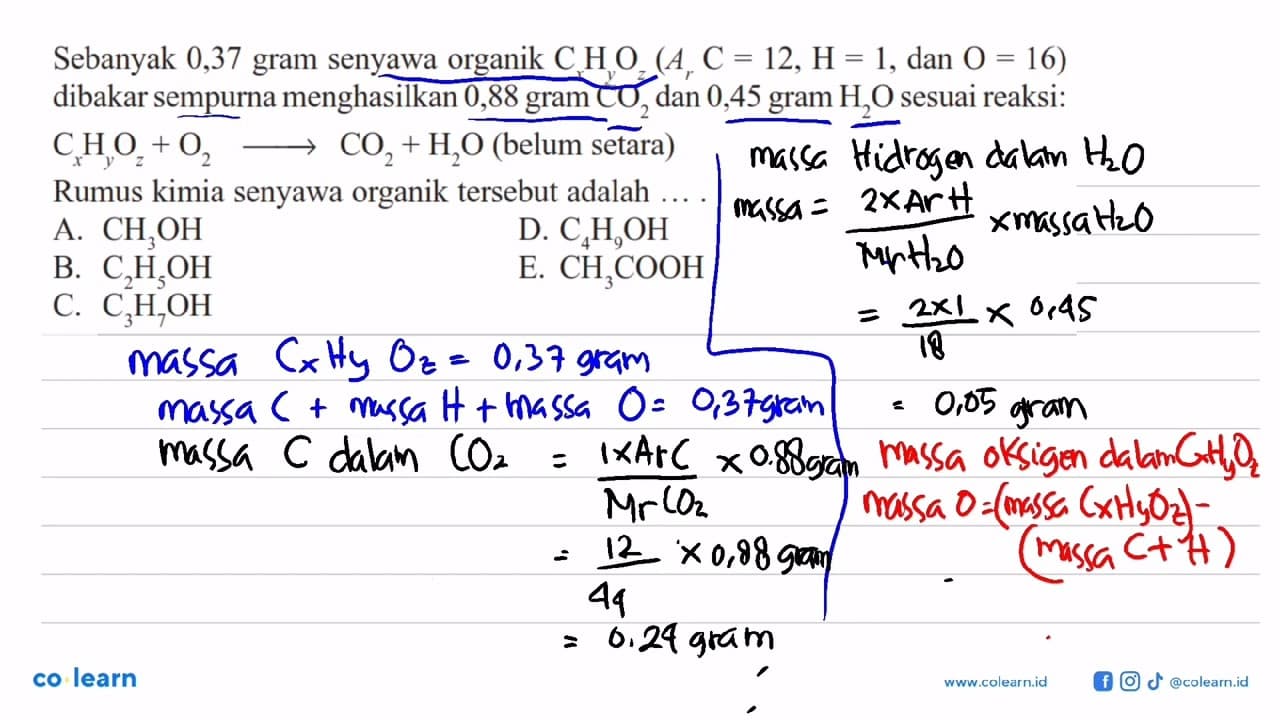 Sebanyak 0,37 gram senyawa organik CxHyOz (Ar C = 12, H = 1, dan O = 16)
dibakar sempurna menghasilkan 0,88 gram CO2 dan 0,45 gram H2O sesuai reaksi:
CxHyOz + O2 ⟶ CO2 + H2O (belum setara)
Rumus kimia senyawa organik tersebut adalah ... .
A. CH3OH
B. C2H5OH
C. C3H7OH
D. C4H9OH
E. CH3COOH
massa CxHyOz = 0,37 gram
massa C + massa H + massa O = 0,37 gram
massa C dalam CO2 = 1xArC/MrCO2 x 0.88 gram
= 12/44 x 0,88 gram
= 0.24 gram
massa Hidrogen dalam H2O
massa = 2xArH/MrH2O x massa H2O
= 2x1/18 x 0,45
= 0,05 gram
massa oksigen dalam CxHyOz
massa O = (massa CxHyOz) -
(massa C + H)
co learn
www.colearn.id
@colearn.id